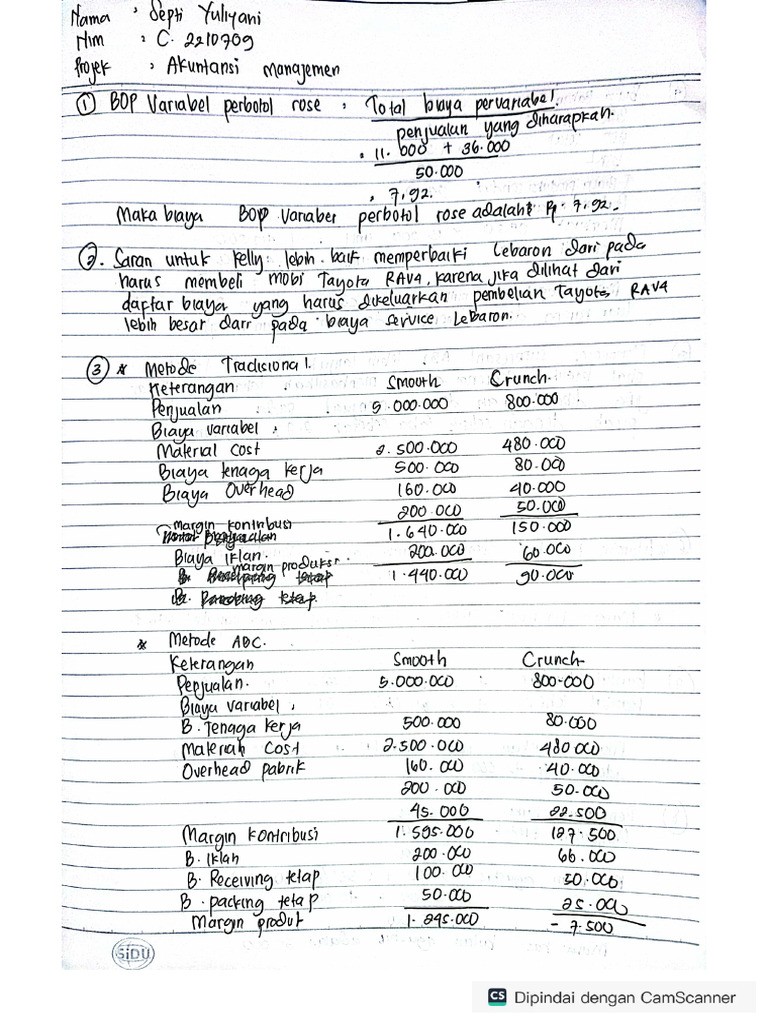 Nama : Septi Yuliyani
Nim : C. 2210709
Projek : Akuntansi Manajemen
① BOP Variabel perbotol rose : Total biaya pervariabel.
penjualan yang diharapkan.
: 11.000 + 36.000
50.000
: 7,92.
Maka biaya BOP Variaber perbotol rose adalah: Rp. 7,92.
②. Saran untuk Kelly lebih baik memperbaiki Lebaron dari pada
harus membeli mobi Tayota RAV4, karena jika dilihat dari
daftar biaya yang harus dikeluarkan pembelian Tayota RAV4
lebih besar dari pada biaya service Lebaron.
③ * Metode Tradisional.
Keterangan Smooth Crunch
Penjualan 5.000.000 800.000
Biaya variabel :
Material Cost 2.500.000 480.000
Biaya tenaga kerja 500.000 80.000
Biaya Overhead 160.000 40.000
200.000 50.000
margin kontribusi 1.640.000 150.000
Biaya iklan. 200.000 60.000
margin produksi. 1.440.000 90.000
* Metode ABC.
Keterangan Smooth Crunch
Penjualan. 5.000.000 800.000
Biaya variabel :
B. Tenaga kerja 500.000 80.000
Material Cost 2.500.000 480.000
Overhead pabrik 160.000 40.000
200.000 50.000
45.000 22.500
Margin Kontribusi 1.595.000 127.500
B. Iklan 200.000 60.000
B. Receiving tetap 100.000 50.000
B. packing tetap 50.000 25.000
Margin produk 1.245.000 - 7.500
SiDU
CS Dipindai dengan CamScanner